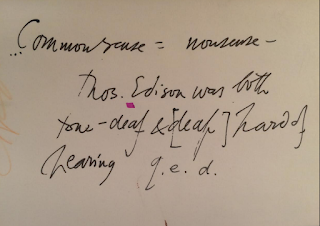 ...Commonsense = nonsense -
Thos. Edison was both
tone-deaf & [deaf] hard of
hearing q.e.d.